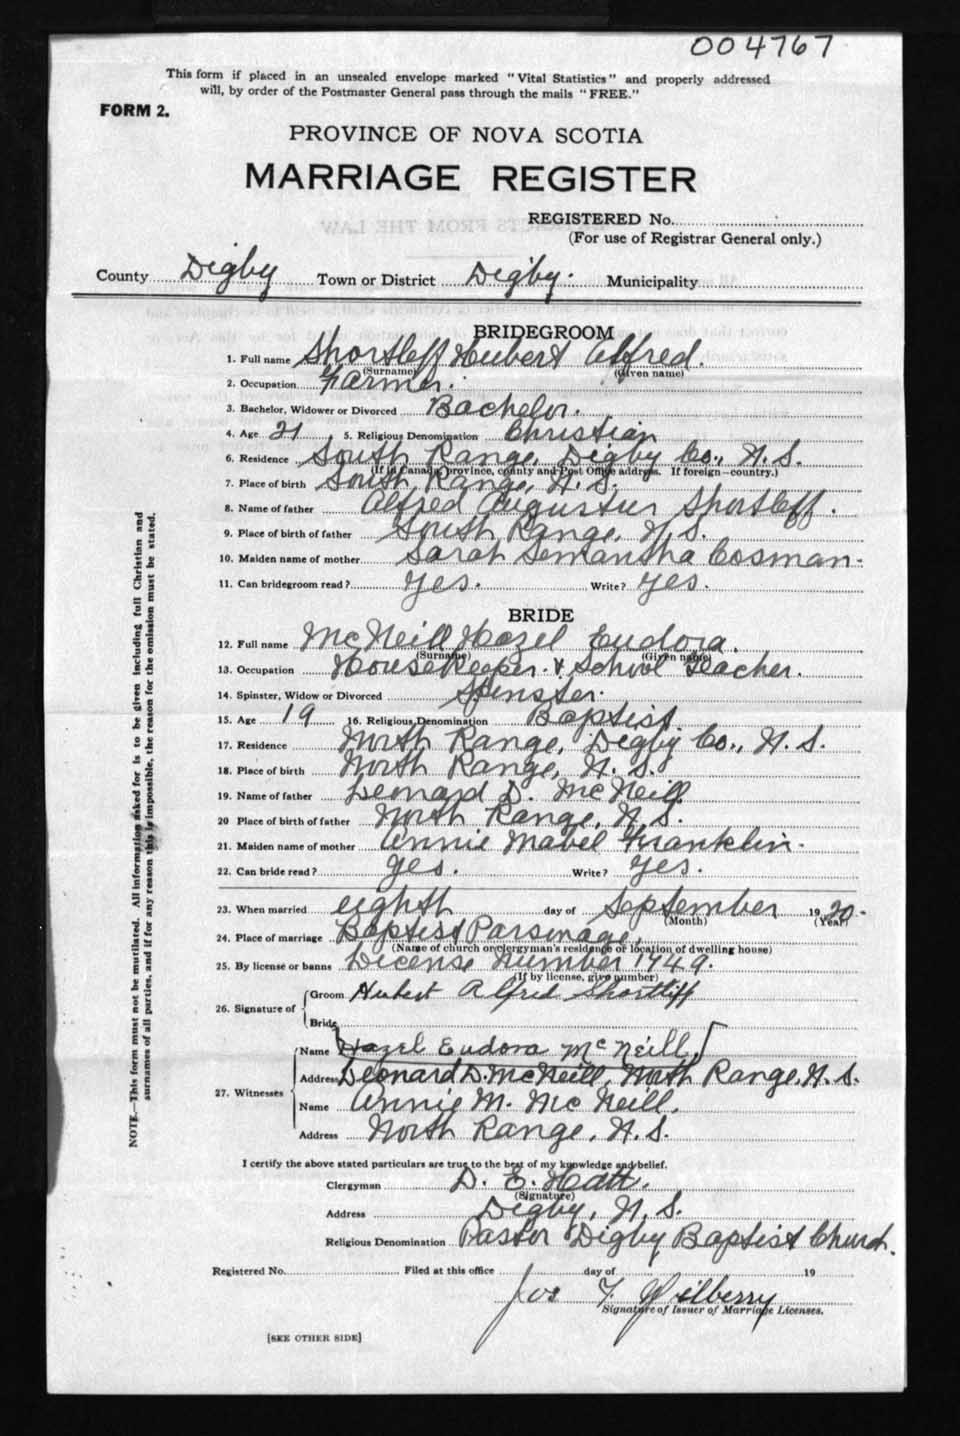 004767
This form if placed in an unsealed envelope marked "Vital Statistics" and properly addressed
will, by order of the Postmaster General pass through the mails "FREE."
FORM 2.
PROVINCE OF NOVA SCOTIA
MARRIAGE REGISTER
REGISTERED No.
(For use of Registrar General only.)
County Digby Town or District Digby. Municipality
BRIDEGROOM
1. Full name Shortleff Hubert Alfred.
(Surname) (Given name)
2. Occupation Farmer.
3. Bachelor, Widower or Divorced Bachelor.
4. Age 21 5. Religious Denomination Christian
6. Residence South Range, Digby Co., N. S.
(If in Canada, province, county and Post Office address. If foreign—country.)
7. Place of birth South Range, N. S.
8. Name of father Alfred Augustus Shortleff.
9. Place of birth of father South Range, N. S.
10. Maiden name of mother Sarah Semantha Cosman.
11. Can bridegroom read? Yes. Write? Yes.
BRIDE
12. Full name McNeill Hazel Eudora.
(Surname) (Given name)
13. Occupation Housekeeper & School Teacher.
14. Spinster, Widow or Divorced Spinster.
15. Age 19 16. Religious Denomination Baptist
17. Residence North Range, Digby Co., N. S.
18. Place of birth North Range, N. S.
19. Name of father Leonard D. McNeill
20 Place of birth of father North Range, N. S.
21. Maiden name of mother Annie Mabel Franklin.
22. Can bride read? Yes. Write? Yes.
23. When married eighth day of September 1920.
(Month) (Year)
24. Place of marriage Baptist Parsonage,
(Name of church or clergyman's residence or location of dwelling house)
25. By license or banns License Number 1749.
(If by license, give number)
26. Signature of Groom Hubert Alfred Shortliff
Bride
27. Witnesses Name Hazel Eudora McNeill
Address Leonard D. McNeill, North Range, N. S.
Name Annie M. McNeill,
Address North Range, N. S.
I certify the above stated particulars are true to the best of my knowledge and belief.
Clergyman D. E. Hatt.
(Signature)
Address Digby, N. S.
Religious Denomination Pastor Digby Baptist Church.
Registered No. Filed at this office day of 19
Jos F.
Signature of Issuer of Marriage Licenses.
[SEE OTHER SIDE]
NOTE.—This form must not be mutilated. All information asked for is to be given including full Christian and
surnames of all parties, and if for any reason this is impossible, the reason for the omission must be stated.